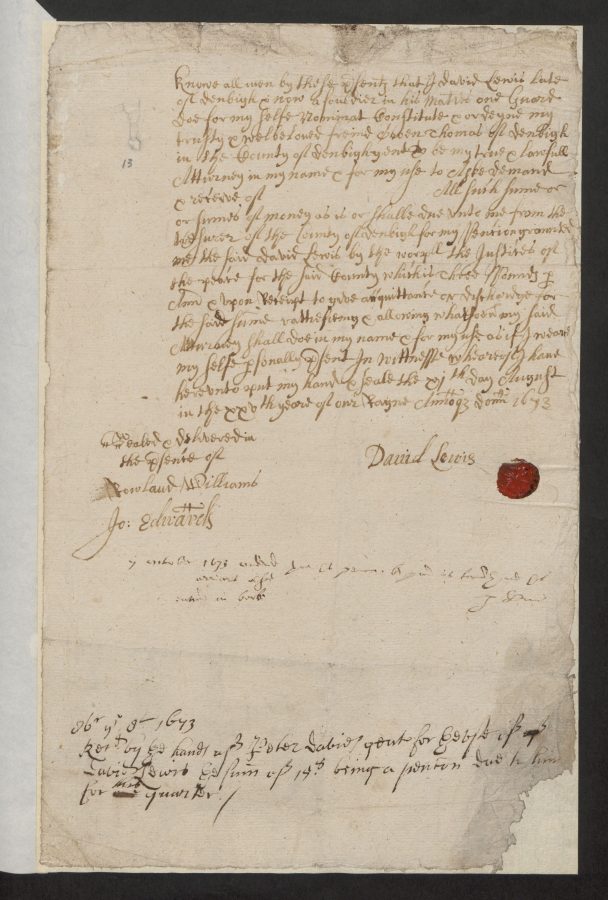 13
Knowe all men by these p̄sents that I David Lewis late
of denbigh & now a souldier in his Ma:ties owne Guard
doe for my selfe Nominat Constitute & ordeyne my
trusty & welbeloved freind Thomas of denbigh
in the County of denbigh gent to be my true & lawfull
Attorney in my name & for my use to Aske demand
& receive of All such sume or
or sumes of money as is or shalbe due unto me from the
of the County of denbigh for my pention graunted
me the said David Lewis by the worp:ll the Justices of
the peace for the said County which is three pounds p
Ann & upon Receipt to give acquittance or dischardge for
the said sume rattifieing & allowing whatsoever my said
Atturney shall doe in my name & for my use as if I weare
my selfe p̄sonally p̄sent In wittnesse whereof I have
hereunto put my hand & seale the xjth day August
in the xxvth yeare of our Raigne Annoq3 dom 1673
Sealed & delivered in
the p̄sence of
David Lewis
Rowland Williams
Jo: Edwards
7 october 1673
entred in booke
8br ye 8t 1673
Rec:d by the hands of Peter Davies gent for the use of ye
David Lewis the sum of 15s being a pencon due to him
for this quarter /